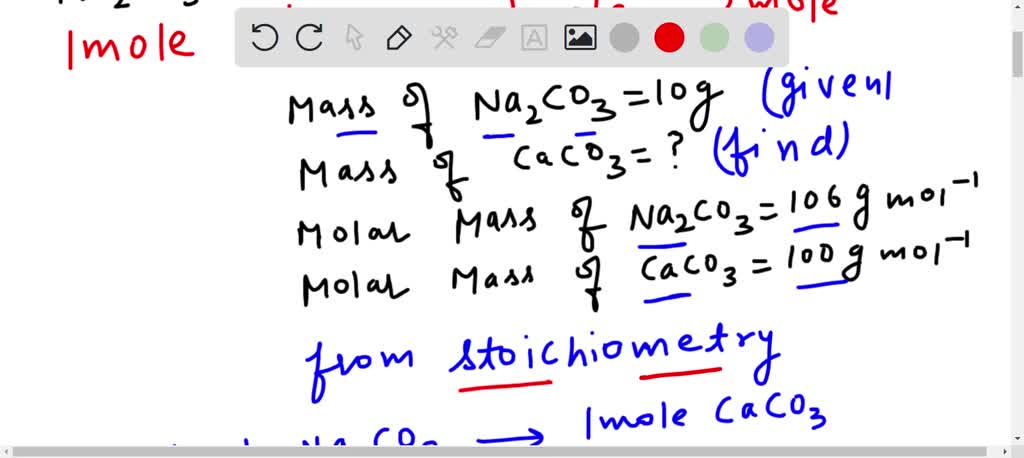 1mole
mole
Mass of Na2CO3=10g (given)
Mass of CaCO3=? (find)
Molar Mass of Na2CO3=106 g mol-1
Molar Mass of CaCO3=100g mol-1
from stoichiometry
Na CO → 1mole CaCO3